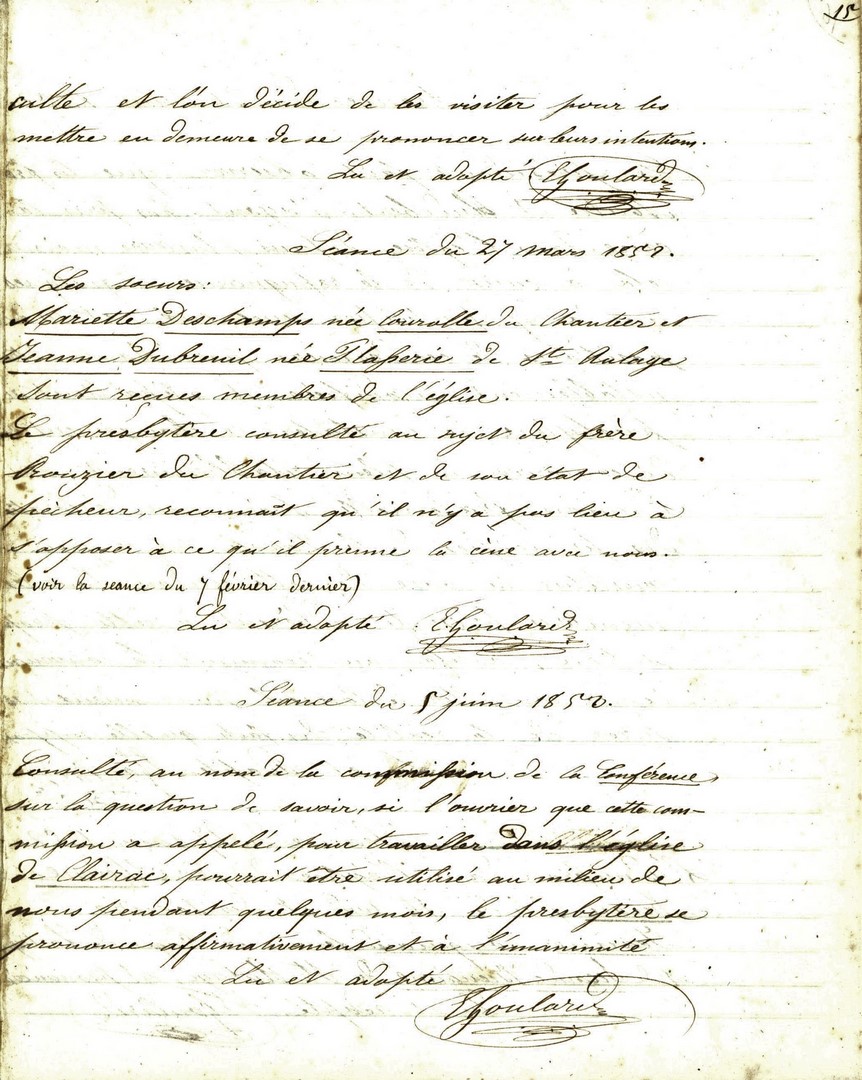 15
culte et l'on décide de les visiter pour les
mettre en demeure de se prononcer sur leurs intentions.
Lu et adopté EGoulard
Séance du 27 mars 1852.
Les soeurs:
Mariette Deschamps née Courolle du Chantier et
Jeanne Dubreuil née Flasserie de St. Aulaye
sont reçues membres de l'église.
Le presbytère consulté au sujet du frère
Rouzier du Chantier et de son état de
pécheur, reconnaît qu'il n'y a pas lieu à
s'opposer à ce qu'il prenne la cène avec nous.
(voir la séance du 7 février dernier)
Lu et adopté EGoulard
Séance du 5 juin 1852.
Consulté, au nom de la commission de la Conférence,
sur la question de savoir, si l'ouvrier que cette com-
mission a appelé, pour travailler dans l'église
de Clairac, pourrait être utilisé au milieu de
nous pendant quelques mois, le presbytère se
prononce affirmativement et à l'unanimité
Lu et adopté
EGoulard